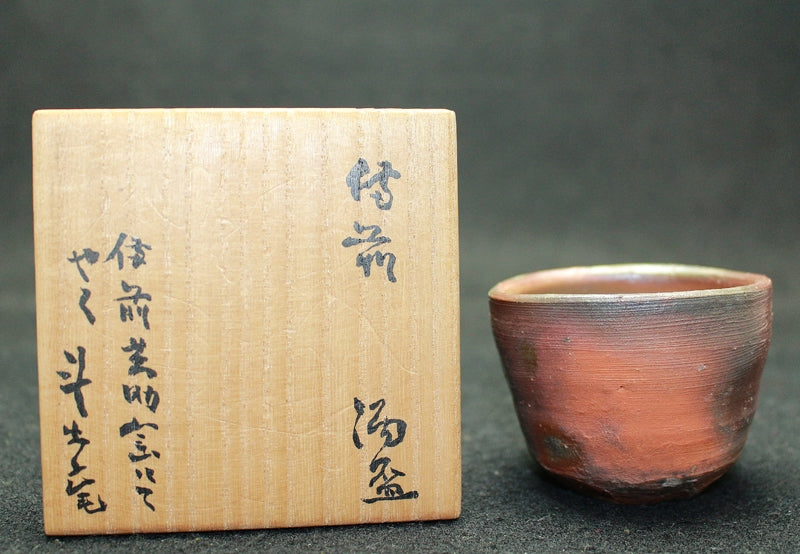 備前 酒盃
備前 助窯にて
やく 斗出庵